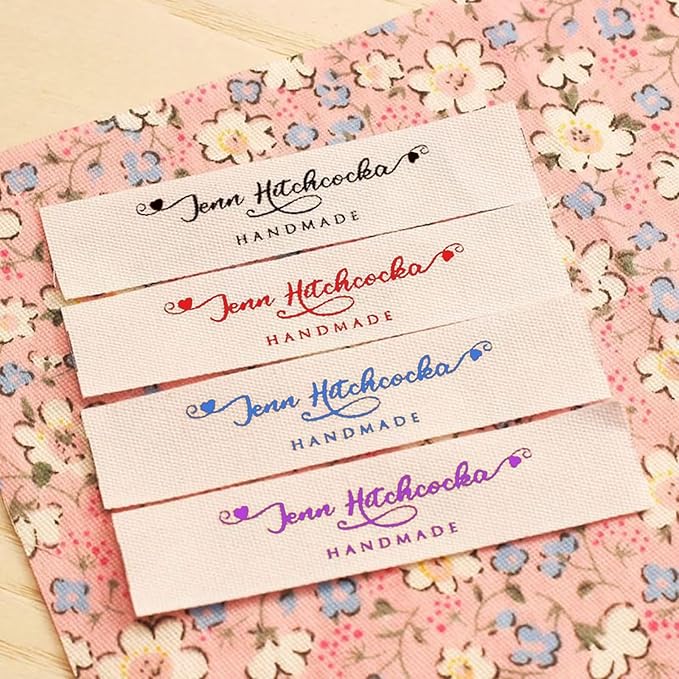 Jenn Hitchcocka
HANDMADE
Jenn Hitchcocka
HANDMADE
Jenn Hitchcocka
HANDMADE
Jenn Hitchcocka
HANDMADE